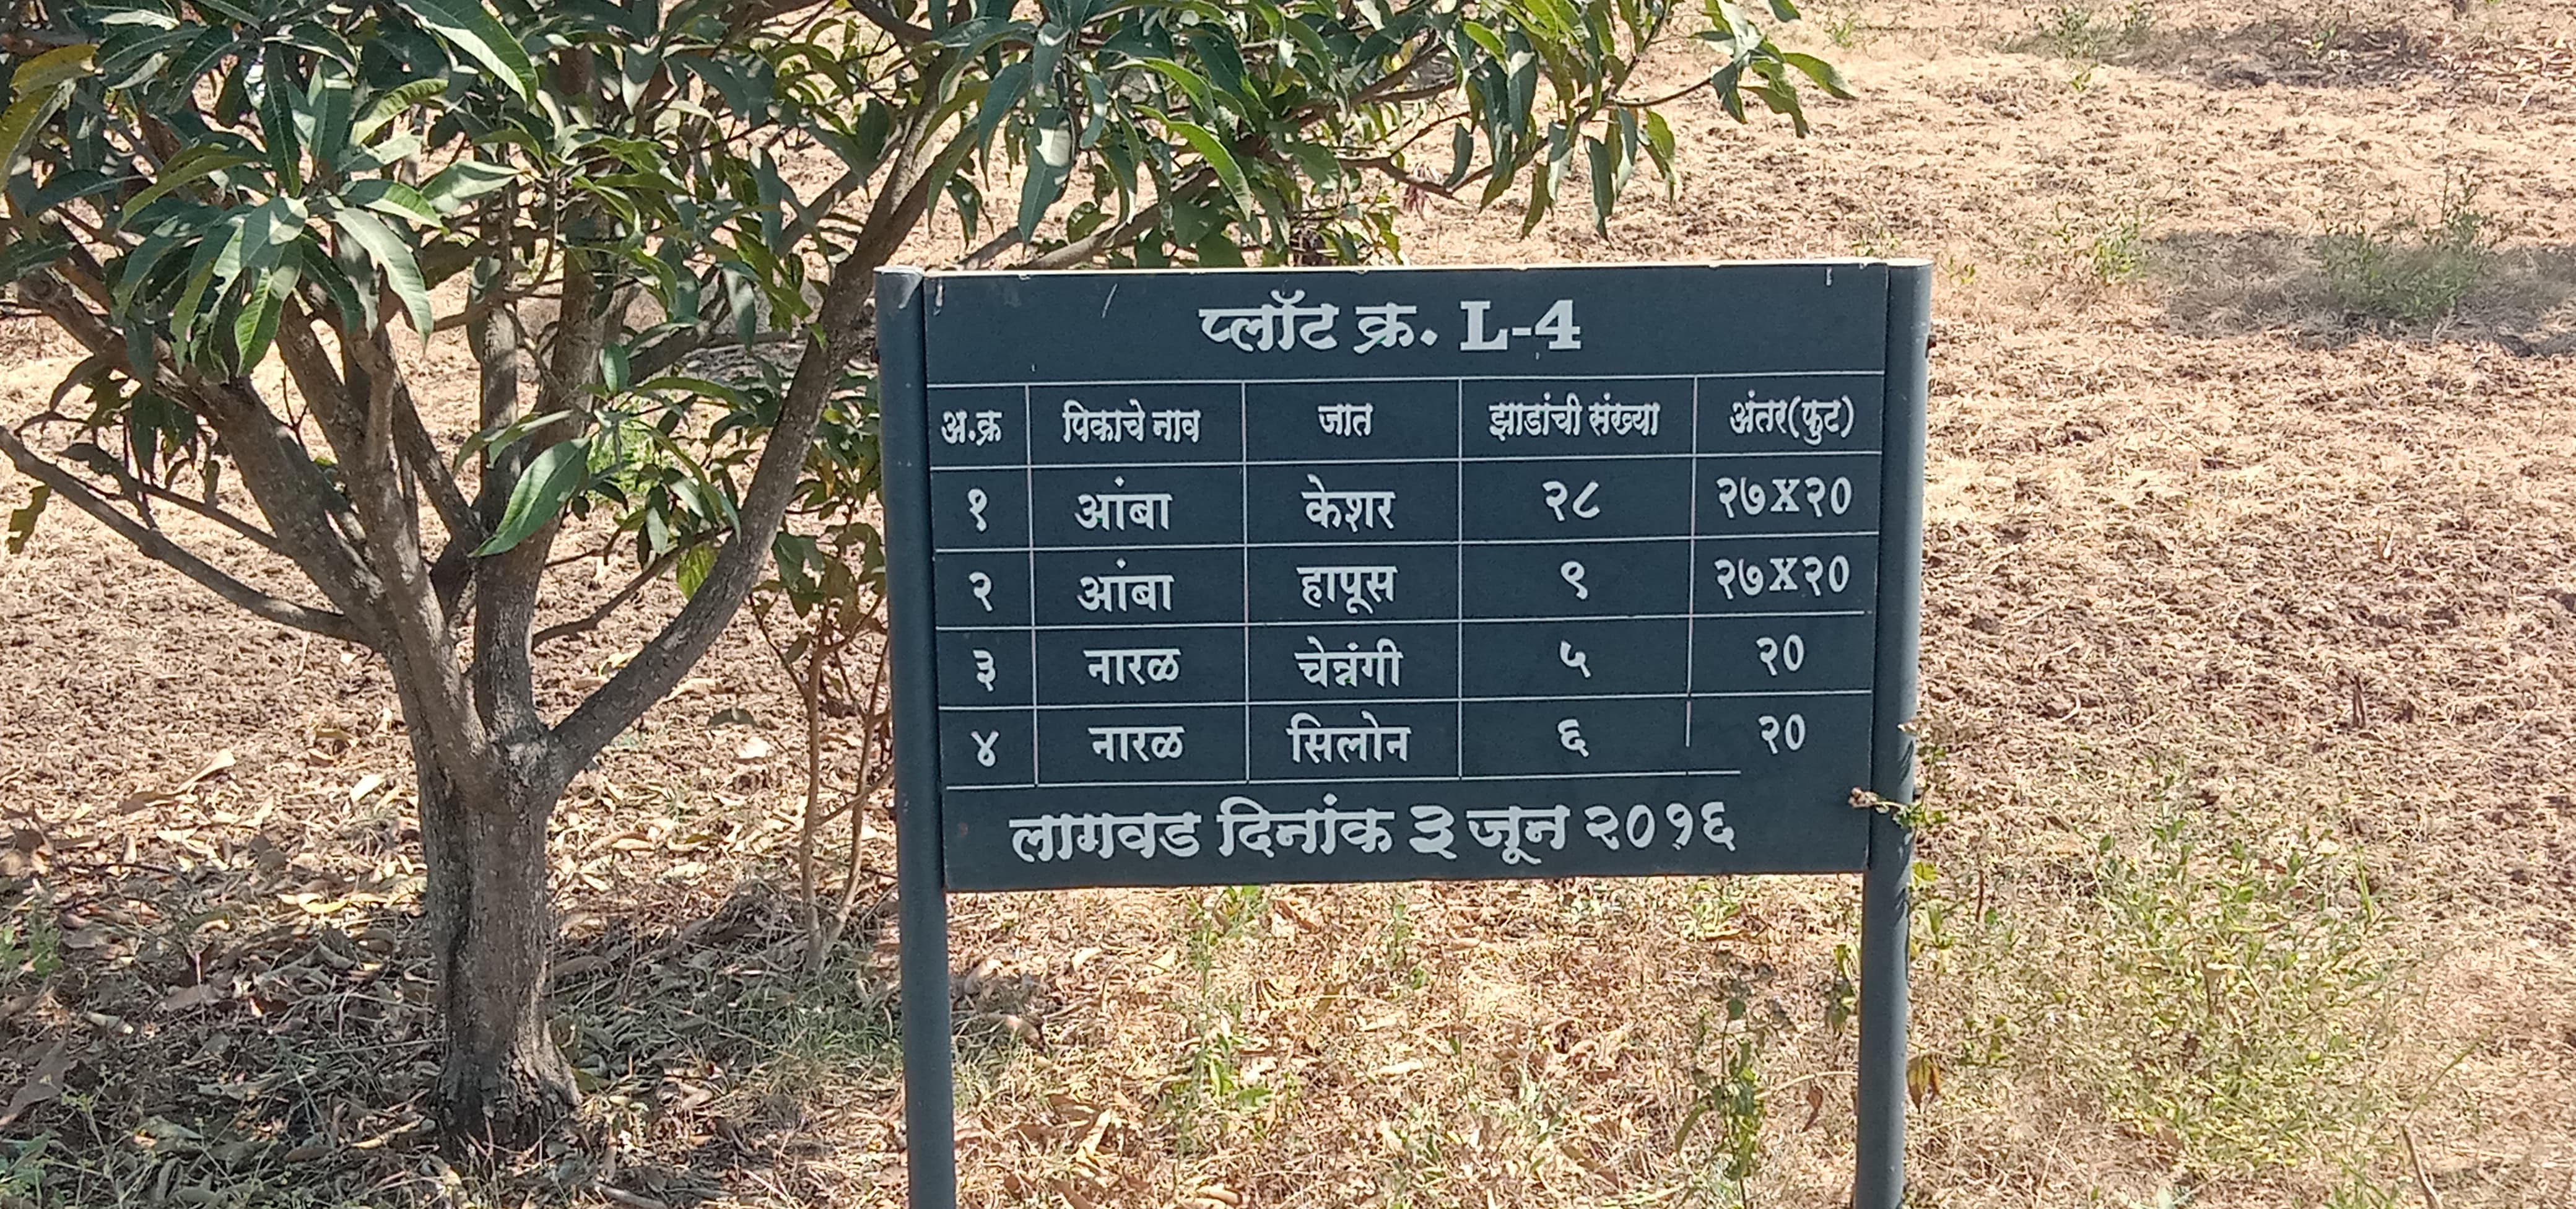 प्लॉट क्र. L-4
अ.क्र पिकाचे नाव जात झाडांची संख्या अंतर(फुट)
१ आंबा केशर २८ २७X२०
२ आंबा हापूस ९ २७X२०
३ नारळ चेन्नंगी ५ २०
४ नारळ सिलोन ६ २०
लागवड दिनांक ३ जून २०१६